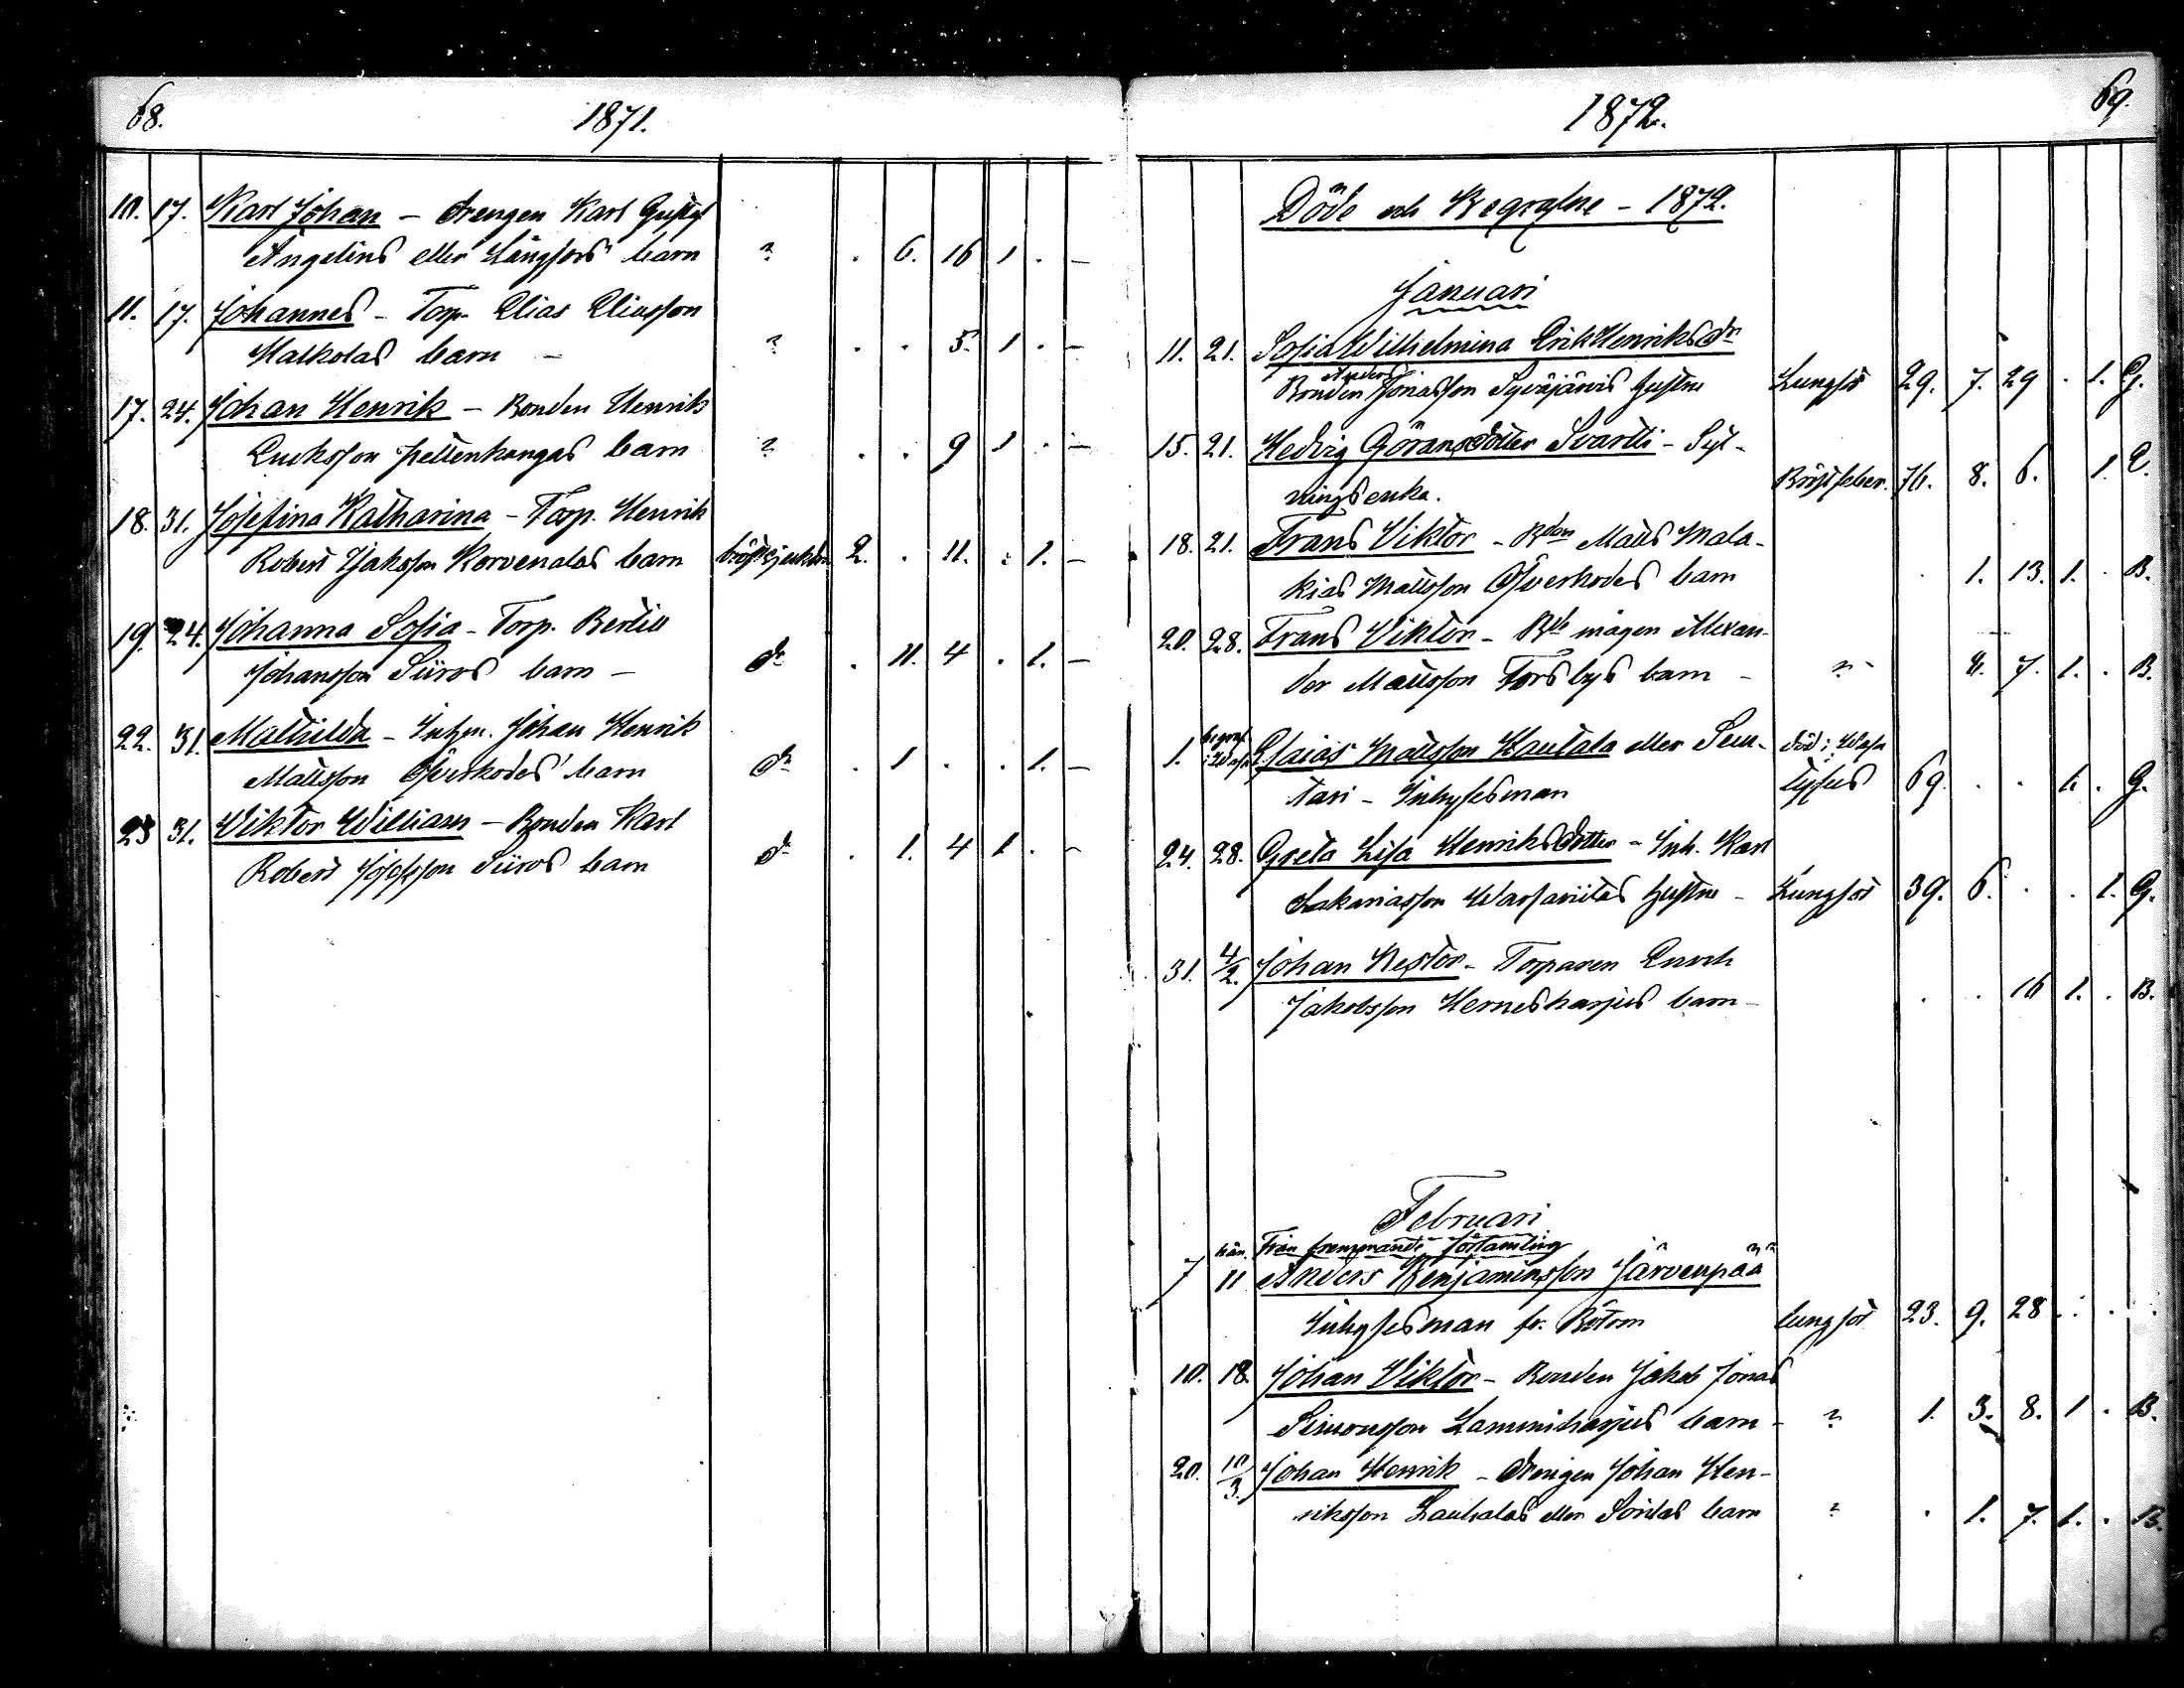 68.
1871.
10. 17. Karl Johan - drengen Karl Gustaf
Angelins eller Långfors' barn " . 6. 16 1 . —
11. 17. Johannes - Torp. Elias Eliasson
barn — " . . 5. 1 . —
17. 24. Johan Henrik - Bonden Henrik
barn " . . 9 1 . —
18. 31. Josefina Katharina - Torp. Henrik
Robert barn bröstsjukdom 2. . 11. . 1. —
19. 24. Johanna Sofia - Torp. Bertill
Johansson Siiros barn — do . 11. 4 . 1. —
22. 31. Mathilda - Inhm. Johan Henrik
Mattsson Öfverkodes' barn do . 1 . . 1. —
23 31. Viktor William - Bonden Karl
Robert Josefsson Siiros barn do . 1. 4 1 . —
1872.
69.
Döde och Begrafne - 1872.
Januari
11. 21. Sofia Wilhelmina Erik Henriksdr
Anders
Bonden Jonasson Syväjärvis hustru Lungsot 29. 7. 29 . 1. G.
15. 21. Hedvig Göransdotter Svartti - Syt-
ningsenka. Bröstfeber. 76. 8. 6. 1. E.
18. 21. Frans Viktor - Bden Matts Mala-
kias Mattsson Öfverkodes barn . 1. 13. 1. . B.
20. 28. Frans Viktor - Bds mågen Alexan-
der Mattsson Forsbys barn — " 7. 1. . B.
1. begraf. i Wasa Esaias Mattsson Hautala eller
- Inhysesman död i Wasa tyfus 69 . . 1. . G.
24. 28. Greta Lisa Henriksdotter - Inh. Karl
Sakariasson hustru — Lungsot 39. 6. . . 1. G.
31. 4/2. Johan Nestor - Torparen Enoch
Jakobsson Herneskarjus barn — . . 16 1. . B.
Februari
Från fremmande församling
7 11 Anders Benjaminsson Järvenpää
Inhysesman fr. Bötom lungsot 23. 9. 28 . . .
10. 18. Johan Viktor - Bonden Jakob Jonas
Simonsson Lamminharjus barn - " 1. 3. 8. 1 . B.
20. 10/3. Johan Henrik - drengen Johan Hen-
riksson eller barn " . 1. 7. 1. . B.